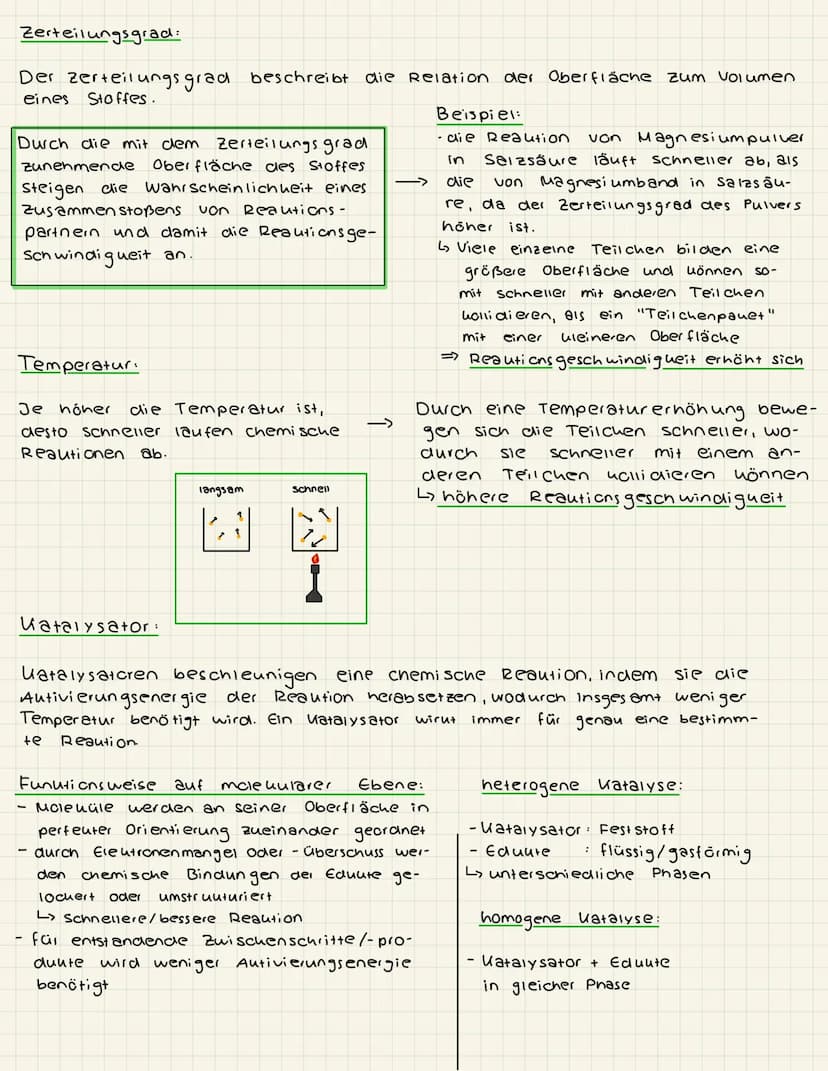 Zerteilungsgrad:
Der Zerteilungsgrad beschreibt die Relation der Oberfläche zum Volumen
eines Stoffes.
Durch die mit dem Zerteilungsgrad
zunehmende Oberfläche des Stoffes
steigen die Wahrscheinlichkeit eines
Zusammenstoßens von Reaktions-
partnern und damit die Reaktionsge-
schwindigkeit an.
→
Beispiel:
- die Reaktion von Magnesiumpulver
in Salzsäure läuft schneller ab, als
die von Magnesiumband in Salzsäu-
re, da der Zerteilungsgrad des Pulvers
höher ist.
↳ Viele einzelne Teilchen bilden eine
größere Oberfläche und können so-
mit schneller mit anderen Teilchen
kollidieren, als ein "Teilchenpaket"
mit einer kleineren Oberfläche
⇒ Reaktionsgeschwindigkeit erhöht sich
Temperatur:
Je höher die Temperatur ist,
desto schneller laufen chemische
Reaktionen ab.
→
Durch eine Temperaturerhöhung bewe-
gen sich die Teilchen schneller, wo-
durch sie schneller mit einem an-
deren Teilchen kollidieren können
↳ höhere Reaktionsgeschwindigkeit
langsam schnell
Katalysator:
Katalysatoren beschleunigen eine chemische Reaktion, indem sie die
Aktivierungsenergie der Reaktion herabsetzen, wodurch insgesamt weniger
Temperatur benötigt wird. Ein Katalysator wirkt immer für genau eine bestimm-
te Reaktion
Funktionsweise auf molekularer Ebene:
- Moleküle werden an seiner Oberfläche in
perfekter Orientierung zueinander geordnet
- durch Elektronenmangel oder -überschuss wer-
den chemische Bindungen der Edukte ge-
lockert oder umstrukturiert
↳ schnellere/bessere Reaktion
- für entstandende Zwischenschritte/-pro-
dukte wird weniger Aktivierungsenergie
benötigt
heterogene Katalyse:
- Katalysator : Feststoff
- Edukte : flüssig/gasförmig
↳ unterschiedliche Phasen
homogene Katalyse:
- Katalysator + Edukte
in gleicher Phase